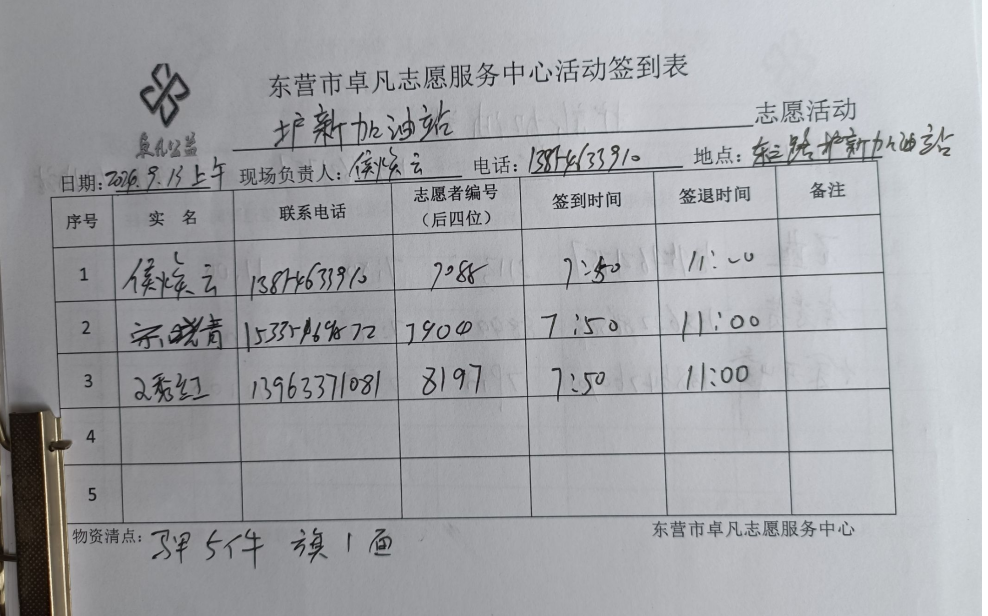 东营市卓凡志愿服务中心活动签到表
卓凡公益
护新加油站 志愿活动
日期: 9.13 上午 现场负责人: 侯焕云 电话: 13854633910 地点: 东三路护新加油站
序号 实 名 联系电话 志愿者编号（后四位） 签到时间 签退时间 备注
1 侯焕云 13854633910 7088 7:50 11:00
2 宗晓青 7900 7:50 11:00
3 秀红 13963371081 8197 7:50 11:00
4
5
物资清点: 马甲5件 旗1面 东营市卓凡志愿服务中心